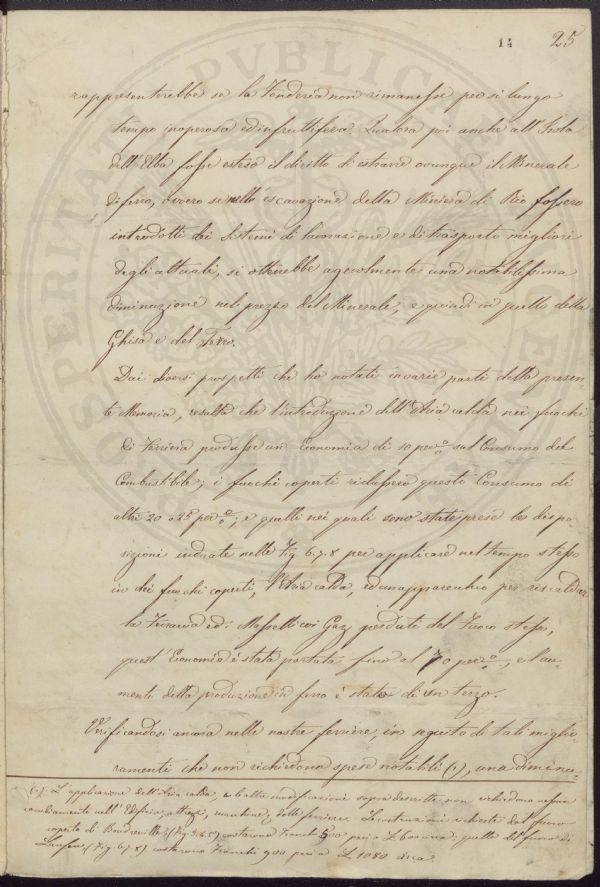 14 25
rappresenterebbe se la Fonderia non rimanesse per sì lungo
tempo inoperosa ed infruttifera. Qualora poi anche all'Isola
dell'Elba fosse esteso il diritto di estrarre ovunque il Minerale
di ferro, ovvero se nell'escavazione della Miniera di Rio fossero
introdotti dei Sistemi di lavorazione e di trasporto migliori
degli attuali, si otterrebbe agevolmente una notabilissima
diminuzione nel prezzo del Minerale, e quindi in quello della
Ghisa e del Ferro.
Dai diversi prospetti che ho notati in varie parti della presen-
te Memoria, resulta che l'introduzione dell'Aria calda nei fuochi
di Ferriera produsse un Economia di 10 per % sul Consumo del
Combustibile; i fuochi coperti ridussero questo Consumo di
altri 20 a 25 per %; e quelli nei quali sono state prese le dispo
sizioni indicate nelle Fig. 6. 7. 8 per applicare nel tempo stesso
in dei fuochi coperti, l'Aria calda, ed un apparecchio per riscaldare
la Ferraccia ed i Masselli coi Gaz perduti del Fuoco stesso,
quest'Economia è stata portata fino al 70 per %, e l'au-
mento della produzione in ferro è stato di un terzo.
Verificandosi ancora nelle nostre ferriere, in seguito di tali miglio-
ramenti che non richiedono spese notabili (1), una diminu-
(1). L'applicazione dell'Aria calda, e le altre modificazioni sopra descritte non richiedono nessun
cambiamento nell'Edifizio, attrezzi, macchine, delle ferriere. Le costruzioni richieste dal fuoco
coperto di (Fig. 3. 4. 5) costarono Franchi pari a L. toscane: quelle del fuoco di
(Fig. 6. 7. 8) costarono Franchi 900 pari a L. 1080 circa.